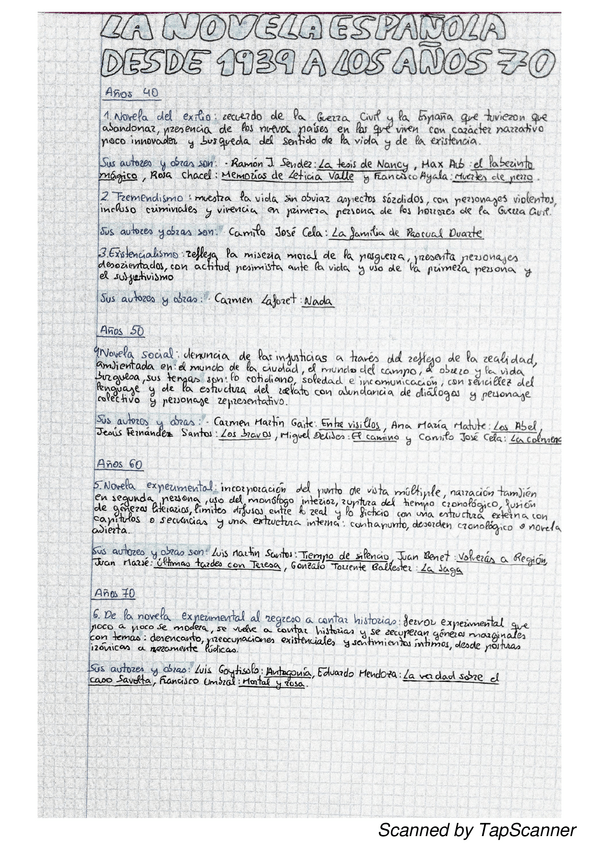 LA NOVELA ESPAÑOLA
DESDE 1939 A LOS AÑOS 70
Años 40
1. Novela del exilio: recuerdo de la Guerra Civil y la España que tuvieron que
abandonar, presencia de los nuevos países en los que viven con carácter narrativo
poco innovador y busqueda del sentido de la vida y de la existencia.
Sus autores y obras son: · Ramón J. Sender: La tesis de Nancy, Max Aub: el laberinto
mágico, Rosa Chacel: Memorias de Leticia Valle y Francisco Ayala: Muertes de perro.
2. Tremendismo: muestra la vida sin obviar aspectos sórdidos, con personajes violentos,
incluso criminales y vivencia en primera persona de los horrores de la Guerra Civil.
Sus autores y obras son: Camilo José Cela: La familia de Pascual Duarte
3. Existencialismo: refleja la miseria moral de la posguerra, presenta personajes
desorientados, con actitud pesimista ante la vida y uso de la primera persona y
el subjetivismo
Sus autores y obras: · Carmen Laforet: Nada
Años 50
4. Novela social: denuncia de las injusticias a través del reflejo de la realidad,
ambientada en: el mundo de la ciudad, el mundo del campo, el obrero y la vida
burguesa, sus temas son: lo cotidiano, soledad e incomunicación, con sencillez del
lenguaje y de la estructura del relato con abundancia de diálogos y personaje
colectivo y personaje representativo.
Sus autores y obras: · Carmen Martín Gaite: Entre visillos, Ana María Matute: Los Abel,
Jesús Fernández Santos: Los bravos, Miguel Delibes: El camino y Camilo José Cela: La colmena
Años 60
5. Novela experimental: incorporación del punto de vista múltiple, narración también
en segunda persona, uso del monólogo interior, ruptura del tiempo cronológico, fusión
de géneros literarios, límites difusos entre lo real y lo ficticio con una estructura externa con
capítulos o secuencias y una estructura interna: contrapunto, desorden cronológico o novela
abierta.
Sus autores y obras son: Luis Martín Santos: Tiempo de silencio, Juan Benet: Volverás a Región,
Juan Marsé: últimas tardes con Teresa, Gonzalo Torrente Ballester: La saga
Años 70
6. De la novela experimental al regreso a contar historias: fervor experimental que
poco a poco se modera, se vuelve a contar historias y se recuperan géneros marginales
con temas: desencanto, preocupaciones existenciales y sentimientos íntimos, desde posturas
irónicas o meramente lúdicas.
Sus autores y obras: Luis Goytisolo: Antagonía, Eduardo Mendoza: La verdad sobre el
caso Savolta, Francisco Umbral: Mortal y rosa.
Scanned by TapScanner